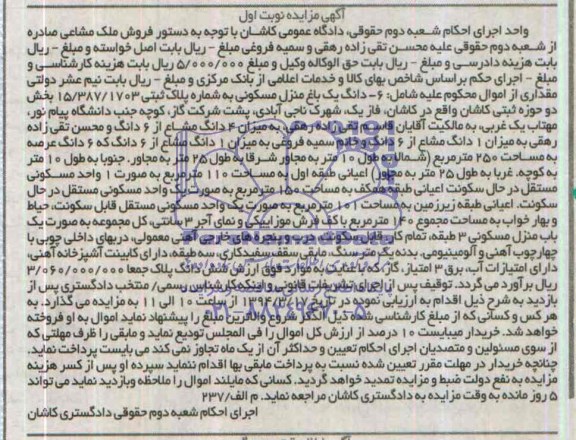 آگهی مزایده نوبت اول
واحد اجرای احکام شعبه دوم حقوقی، دادگاه عمومی کاشان با توجه به دستور فروش ملک مشاعی صادره
از شعبه دوم حقوقی علیه محسن تقی زاده رهقی و سمیه فروغی مبلغ - ریال بابت اصل خواسته و مبلغ - ریال
بابت هزینه دادرسی و مبلغ - ریال بابت حق الوکاله وکیل و مبلغ ۵/۰۰۰/۰۰۰ ریال بابت هزینه کارشناسی و
مبلغ - اجرای حکم براساس شاخص بهای کالا و خدمات اعلامی از بانک مرکزی و مبلغ - ریال بابت نیم عشر دولتی
مقداری از اموال محکوم علیه شامل: ۶- دانگ یک باغ منزل مسکونی به شماره پلاک ثبتی ۱۵/۳۸۷/۱۷۰۳ بخش
دو حوزه ثبتی کاشان واقع در کاشان، فاز یک، شهرک ناجی آبادی، پشت شرکت گاز، کوچه جنب دانشگاه پیام نور،
مهتاب یک غربی، به مالکیت آقایان قاسم تقی زاده رهقی به میزان ۴ دانگ مشاع از ۶ دانگ و محسن تقی زاده
رهقی به میزان ۱ دانگ مشاع از ۶ دانگ و خانم سمیه فروغی به میزان ۱ دانگ مشاع از ۶ دانگ که ۶ دانگ عرصه
به مساحت ۲۵۰ مترمربع (شمالا به طول ۱۰ متر به مجاور شرقا به طول ۲۵ متر به مجاور. جنوبا به طول ۱۰ متر
به کوچه. غربا به طول ۲۵ متر به مجاور) اعیانی طبقه اول به مساحت ۱۱۰ مترمربع به صورت ۱ واحد مسکونی
مستقل در حال سکونت اعیانی طبقه همکف به مساحت ۱۵۰ مترمربع به صورت یک واحد مسکونی مستقل در حال
سکونت. اعیانی طبقه زیرزمین به مساحت ۱۰۱ مترمربع به صورت یک واحد مسکونی مستقل قابل سکونت، حیاط
و بهار خواب به مساحت مجموع ۱۴۰ مترمربع با کف فرش موزاییکی و نمای آجر ۳ سانتی، کل مجموعه به صورت یک
باب منزل مسکونی ۳ طبقه، تمام کار، قابل سکونت، درب و پنجره های خارجی آهنی معمولی، دربهای داخلی چوبی با
چهارچوب آهنی و آلومینیومی. بدنه یک متر سنگ، مابقی سقف سفیدکاری، سه طبقه، دارای کابینت آشپزخانه آهنی،
دارای امتیازات آب، برق ۳ امتیاز، گاز، که با عنایت به موارد فوق ارزش شش دانگ پلاک جمعا ۳/۰۶۰/۰۰۰/۰۰۰
ریال برآورد می گردد. توقیف پس از اجرای تشریفات قانونی و اینکه کارشناس رسمی/ منتخب دادگستری پس از
بازدید به شرح ذیل اقدام به ارزیابی نموده در تاریخ ۱۳۹۴/۳/۱۶ از ساعت ۱۰ الی ۱۱ به مزایده می گذارد. به
هر کس و کسانی که از مبلغ کارشناسی شده ذیل الذکر شروع و بالاترین مبلغ را پیشنهاد نماید اموال به او فروخته
خواهد شد. خریدار میبایست ۱۰ درصد از ارزش کل اموال را فی المجلس تودیع نماید و مابقی را ظرف مهلتی که
از سوی مسئولین و متصدیان اجرای احکام تعیین و حداکثر آن از یک ماه تجاوز نمی کند می بایست پرداخت نماید.
چنانچه خریدار در مهلت مقرر تعیین شده نسبت به پرداخت مابقی بها اقدام ننماید سپرده او پس از کسر هزینه
مزایده به نفع دولت ضبط و مزایده تمدید خواهد گردید. کسانی که مایلند اموال را ملاحظه وبازدید نماید می تواند
۵ روز مانده به وقت مزایده به دادگستری کاشان مراجعه نماید. م الف/۲۳۷
اجرای احکام شعبه دوم حقوقی دادگستری کاشان